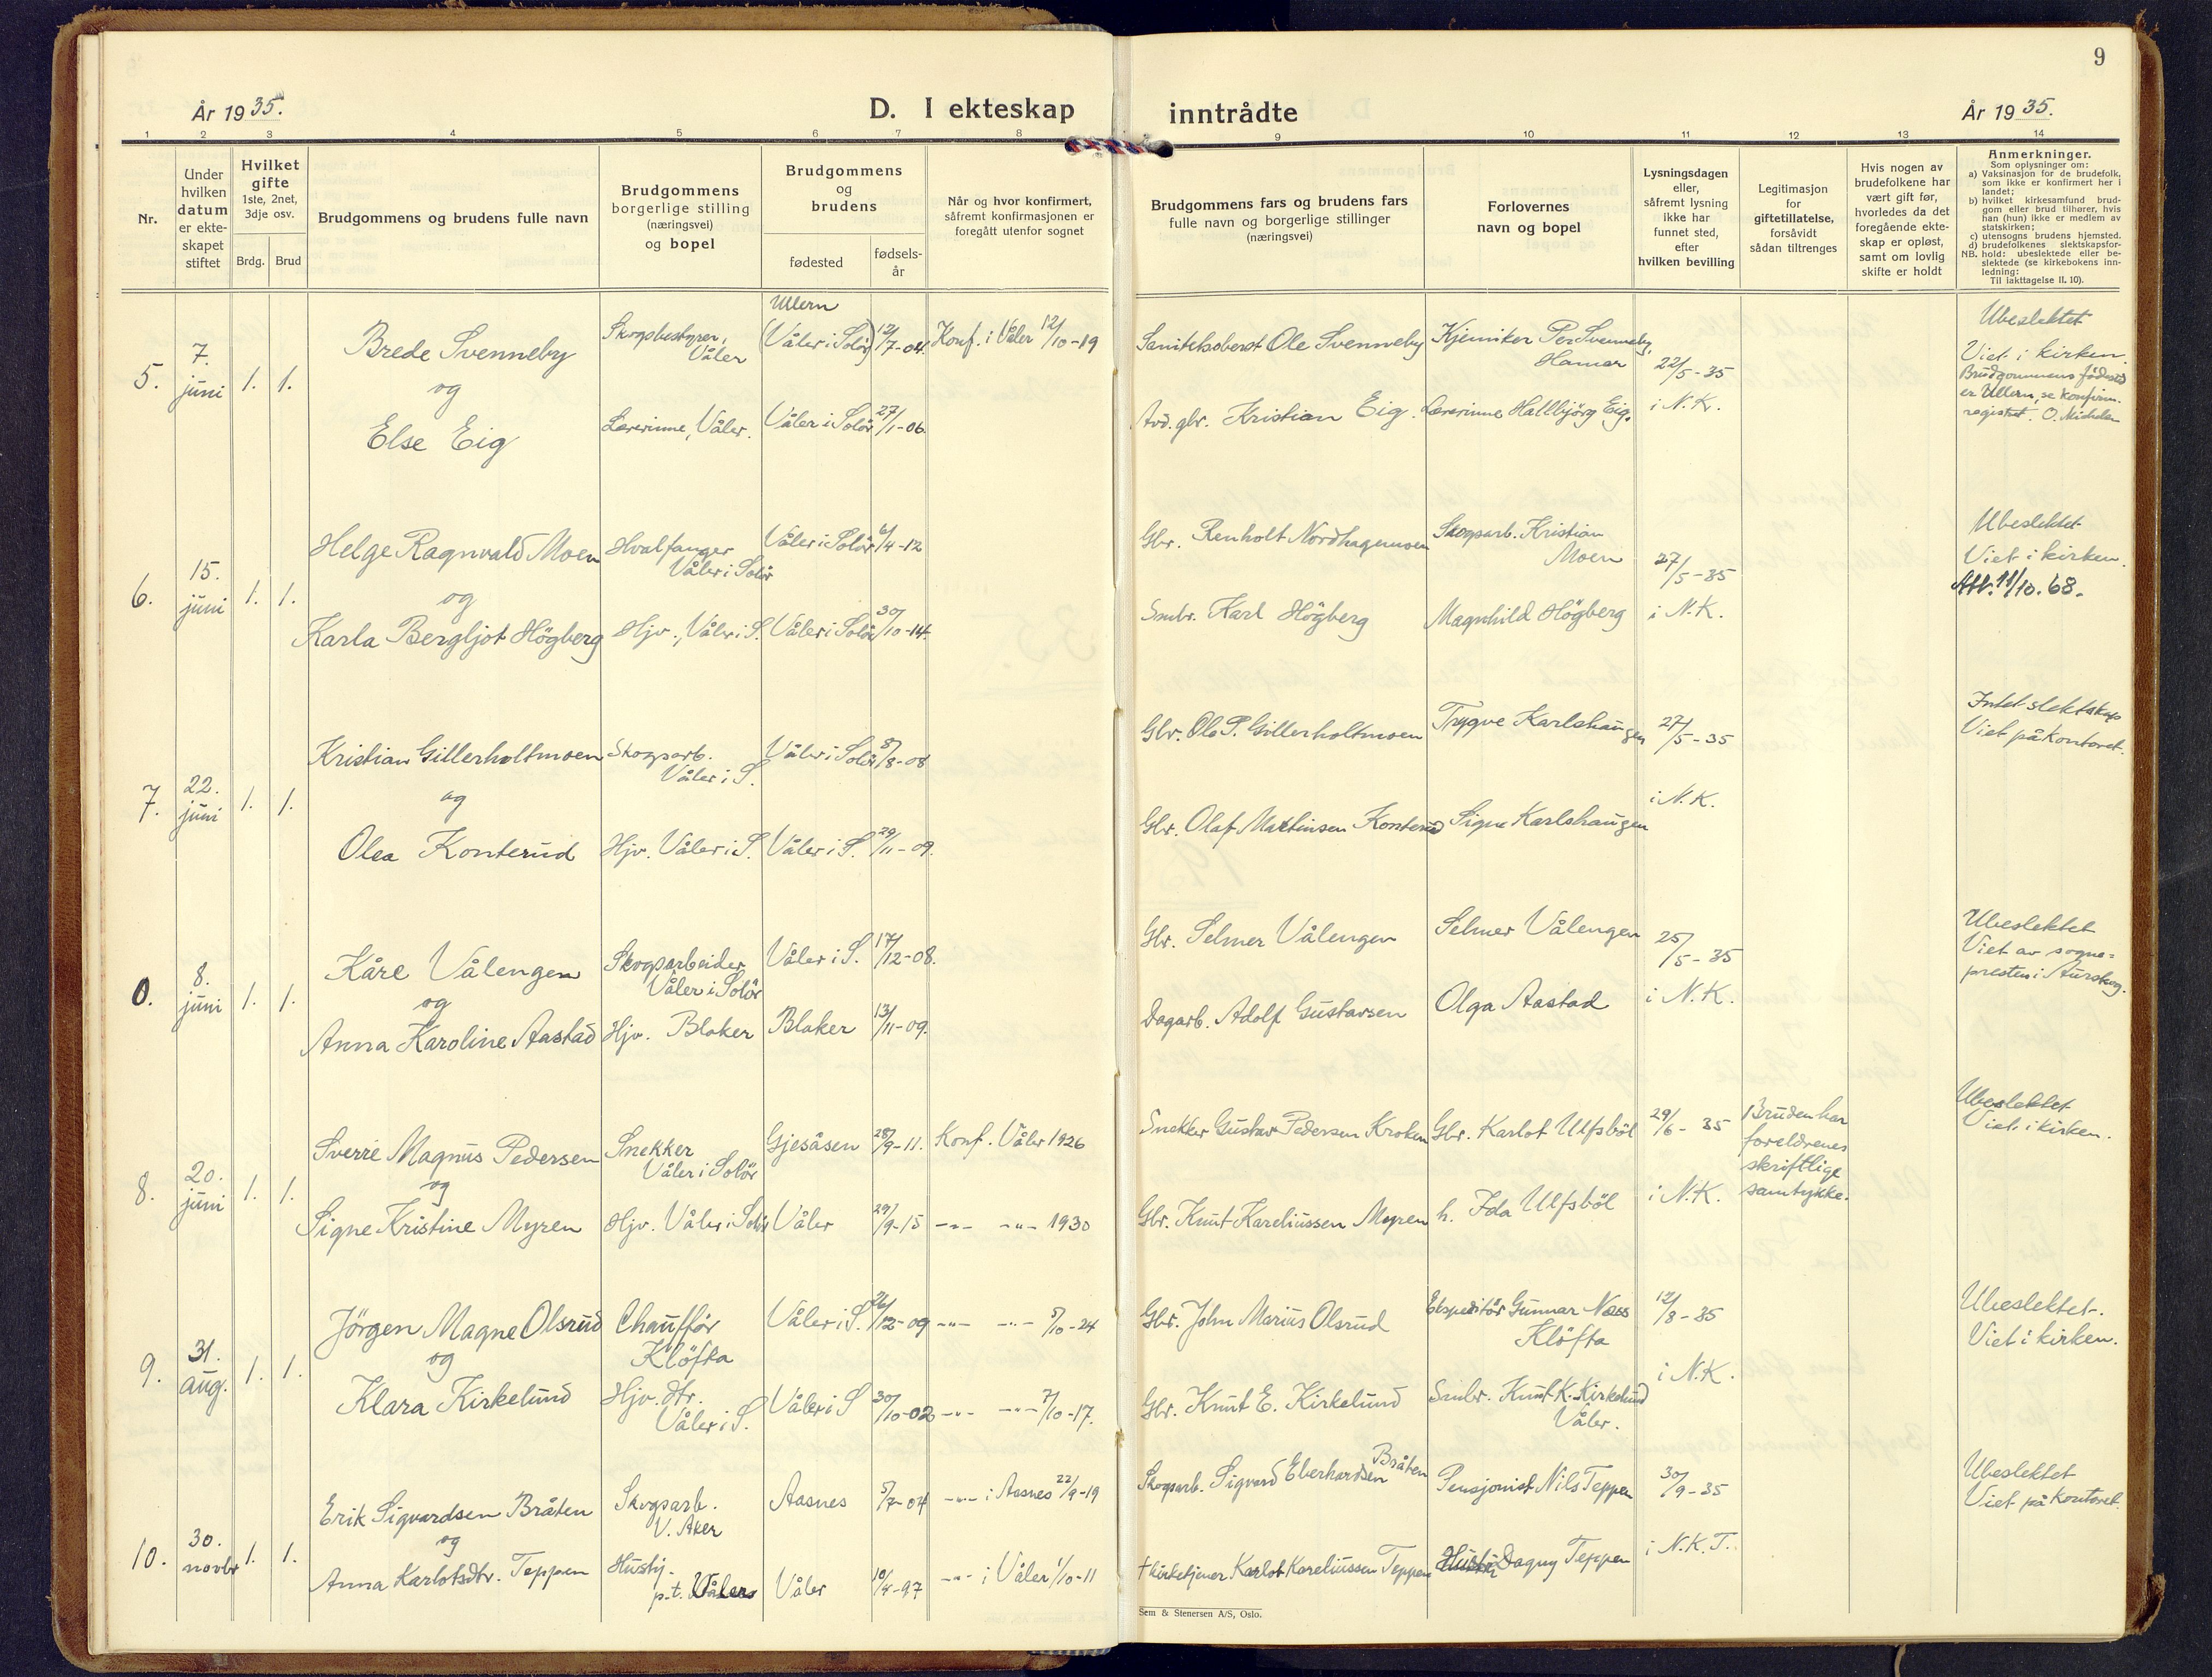 9
År 1935.
D. I ekteskap inntrådte
År 1935.
1 2 3 4 5 6 7 8 9 10 11 12 13 14
Nr.
Under hvilken datum er ekteskapet stiftet
Hvilket gifte 1ste, 2net, 3dje osv.
Brdg. Brud
Brudgommens og brudens fulle navn
Brudgommens borgerlige stilling (næringsvei) og bopel
Brudgommens og brudens
fødested
fødselsår
Når og hvor konfirmert, såfremt konfirmasjonen er foregått utenfor sognet
Brudgommens fars og brudens fars fulle navn og borgerlige stillinger (næringsvei)
Forlovernes navn og bopel
Lysningsdagen eller, såfremt lysning ikke har funnet sted, efter hvilken bevilling
Legitimasjon for giftetillatelse, forsåvidt sådan tiltrenges
Hvis nogen av brudefolkene har vært gift før, hvorledes da det foregående ekteskap er opløst, samt om lovlig skifte er holdt
Anmerkninger.
Som oplysninger om:
a) Vaksinasjon for de brudefolk, som ikke er konfirmert her i landet;
b) hvilket kirkesamfund brudgom eller brud tilhører, hvis han (hun) ikke er medlem av statskirken;
c) utensogns brudens hjemsted.
d) brudefolkenes slektskapsforhold: ubeslektede eller beslektede (se kirkebokens innledning:
NB. Til iakttagelse II. 10).
5. 7. juni 1. 1.
Brede Svenneby
Skogsbestyrer, Våler
Ullern
(Våler i Solør) 12/7-04.
Konf. i Våler 12/10-19
Sanitetsoberst Ole Svenneby
Kjemiker Per Svenneby, Hamar
22/5-35
Ubeslektet
Viet i kirken.
Brudgommens fødested
er Ullern, se konfirm.
registret. O. Michelsen
og
Else Eig
Lærerinne, Våler.
Våler i Solör 27/1-06.
Avd. gbr. Kristian Eig.
Lærerinne Hallbjörg Eig.
i N.K.
6. 15. juni 1. 1.
Helge Ragnvald Moen
Hvalfanger Våler i Solör
Våler i Solör 6/4-12
Gbr. Renholt Nordhagenmoen
Skogsarb. Kristian Moen
27/5-35
Ubeslektet
Viet i kirken.
Att. 11/10.68.
og
Karla Bergljot Högberg
Hjv., Våler i S.
Våler i Solör 30/10-14.
Smbr. Karl Högberg
Magnhild Högberg
i N.K.
7. 22. juni 1. 1.
Kristian Gillerholtmoen
Skogsarb. Våler i S.
Våler i Solör 8/8-08
Gbr. Ole P. Gillerholtmoen
Trygve Karlshaugen
27/5-35
Intet slektskap
Viet på kontoret.
og
Olea Konterud
Hjv. Våler i S.
Våler i S. 29/11-09.
Gbr. Olaf Martinsen Konterud
Signe Karlshaugen
i N.K.
0. 8. juni 1. 1.
Kåre Vålengen
Skogsarbeider Våler i Solör
Våler i S. 17/12-08.
Gbr. Selmer Vålengen
Selmer Vålengen
25/5-35
Ubeslektet
Viet av sogne=
presten i Aurskog.
og
Anna Karoline Aastad
Hjv. Blaker
Blaker 13/11-09.
Dagarb. Adolf Gustavsen
Olga Aastad
i N.K.
8. 20. juni 1. 1.
Sverre Magnus Pedersen
Snekker Våler i Solör
Gjesåsen 28/9-11.
Konf. Våler 1926
Snekker Gustav Pedersen Kroken
Gbr. Karlot Ulfsböl
29/6-35
Bruden har
foreldrenes
skriftlige
samtykke.
Ubeslektet
Viet i kirken.
og
Signe Kristine Myren
Hjv. Våler i Solör
Våler 29/9-15
-"- -"- 1930
Gbr. Knut Kareliussen Myren
h. Ida Ulfsböl
i N.K.
9. 31. aug. 1. 1.
Jörgen Magne Olsrud
Chauffør Klöfta
Våler i S. 26/12-09
-"- -"- 5/10-24
Gbr. John Marius Olsrud
Ekspeditör Gunnar Næss Klöfta
12/8-35
Ubeslektet.
Viet i kirken.
og
Klara Kirkelund
Hjv. dtr. Våler i S.
Våler i S 30/10-02
-"- -"- 7/10-17.
Gbr. Knut E. Kirkelund
Smbr. Knut K. Kirkelund Våler.
i N.K.
10. 30. novbr 1. 1.
Erik Sigvardsen Bråten
Skogsarb. V. Aker
Aasnes 5/7-04
-"- i Aasnes 22/9-19
Skogsarb. Sigvard Eberhardsen Bråten
Pensjonist Nils Teppen
30/9-35
Ubeslektet
Viet på kontoret.
og
Anna Karlotsdtr. Teppen
Hustj. p.t. Våler
Våler 10/4-97
-"- i Våler 1/10-11
† Kirketjener Karlot Kareliussen Teppen
Dagny Teppen
i N.K.T.
Sem & Stenersen A/S, Oslo.